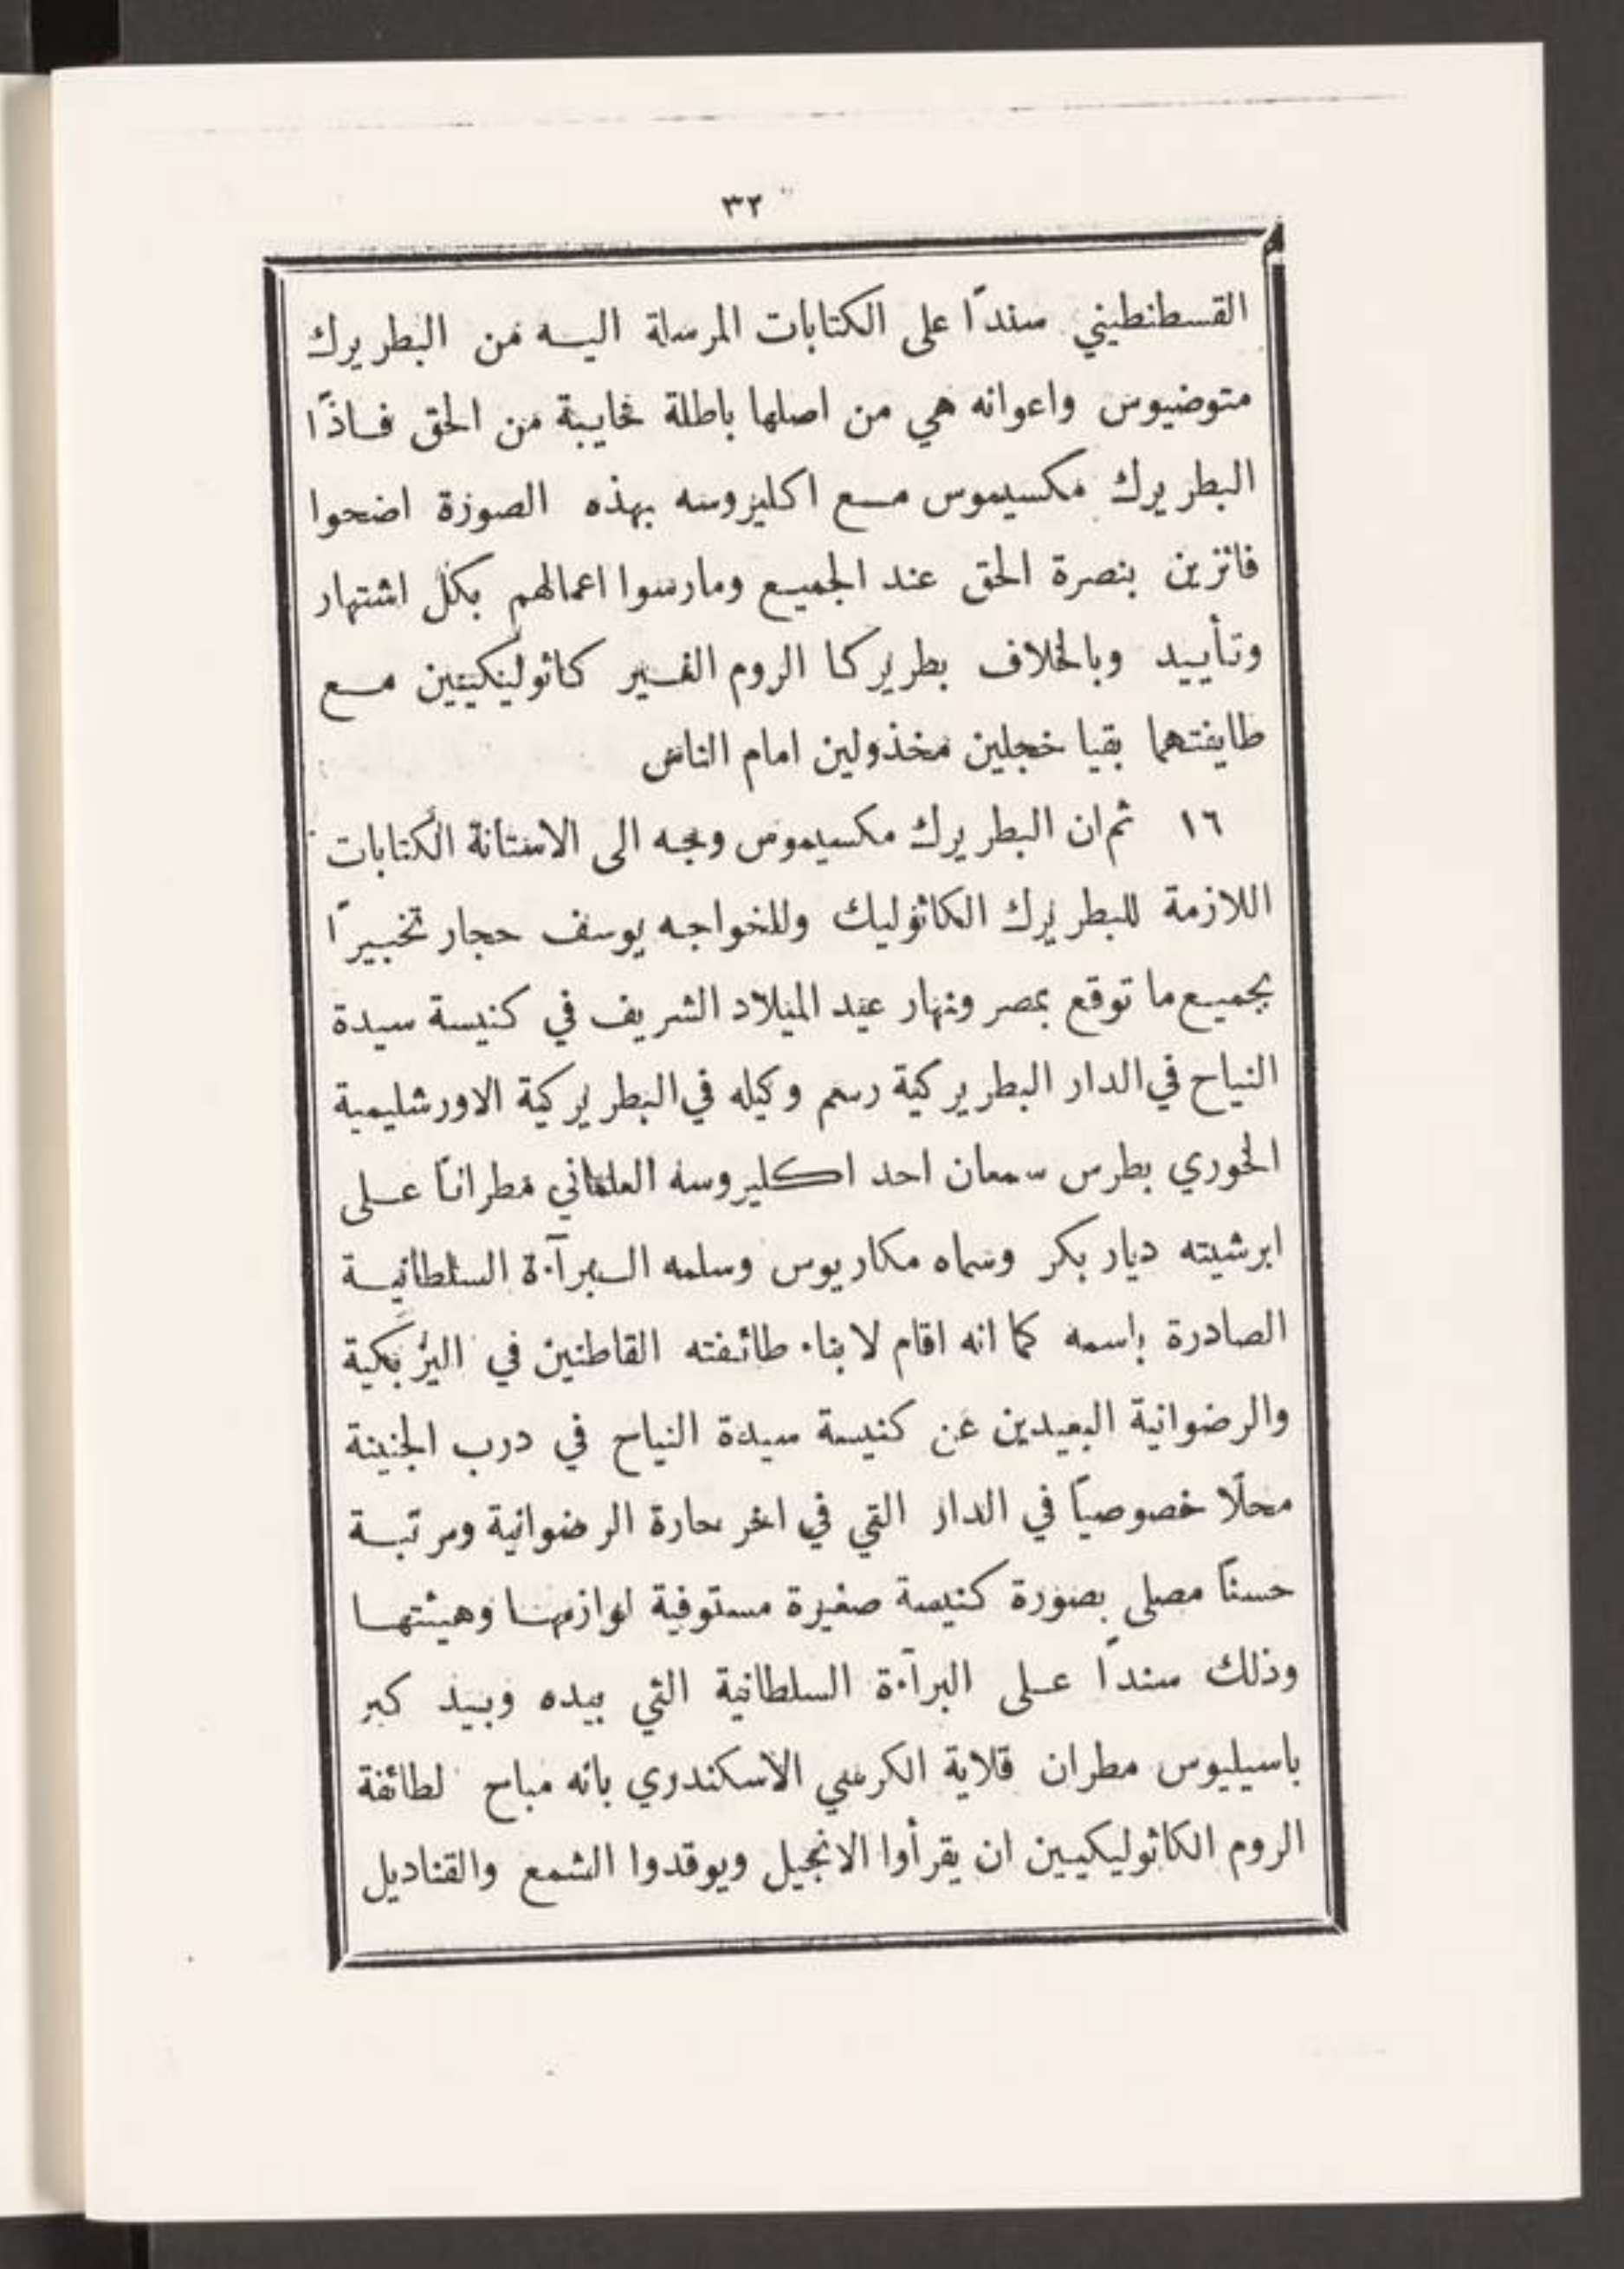 ٣٢
القسطنطيني سنداً على الكتابات المرسلة اليه من البطريرك
متوضيوس واعوانه هي من اصلها باطلة خايبة من الحق فاذًا
البطريرك مكسيموس مع اكليروسه بهذه الصورة اضحوا
فائزين بنصرة الحق عند الجميع ومارسوا اعمالهم بكل اشتهار
وتأييد وبالخلاف بطريركا الروم الغير كاثوليكيين مع
طايفتهما بقيا خجلين مخذولين امام الناس
١٦ ثم ان البطريرك مكسيموس وجه الى الاستانة الكتابات
اللازمة للبطريرك الكاثوليك وللخواجه يوسف حجار تخبيرًا
بجميع ما توقع بمصر ونهار عيد الميلاد الشريف في كنيسة سيدة
النياح في الدار البطريركية رسم وكيله في البطريركية الاورشليمية
الخوري بطرس سمعان احد اكليروسه العلماني مطرانًا على
ابرشيته ديار بكر وسماه مكاريوس وسلمه البرآءة السلطانية
الصادرة باسمه كما انه اقام لابناء طائفته القاطنين في اليزبكية
والرضوانية البعيدين عن كنيسة سيدة النياح في درب الجنينة
محلًا خصوصيًا في الدار التي في اخر حارة الرضوانية ومرتبة
حسنًا مصلى بصورة كنيسة صغيرة مستوفية لوازمها وهيئتها
وذلك سندًا على البرآءة السلطانية التي بيده وبيد كير
باسيليوس مطران قلاية الكرسي الاسكندري بانه مباح لطائفة
الروم الكاثوليكيين ان يقرأوا الانجيل ويوقدوا الشمع والقناديل